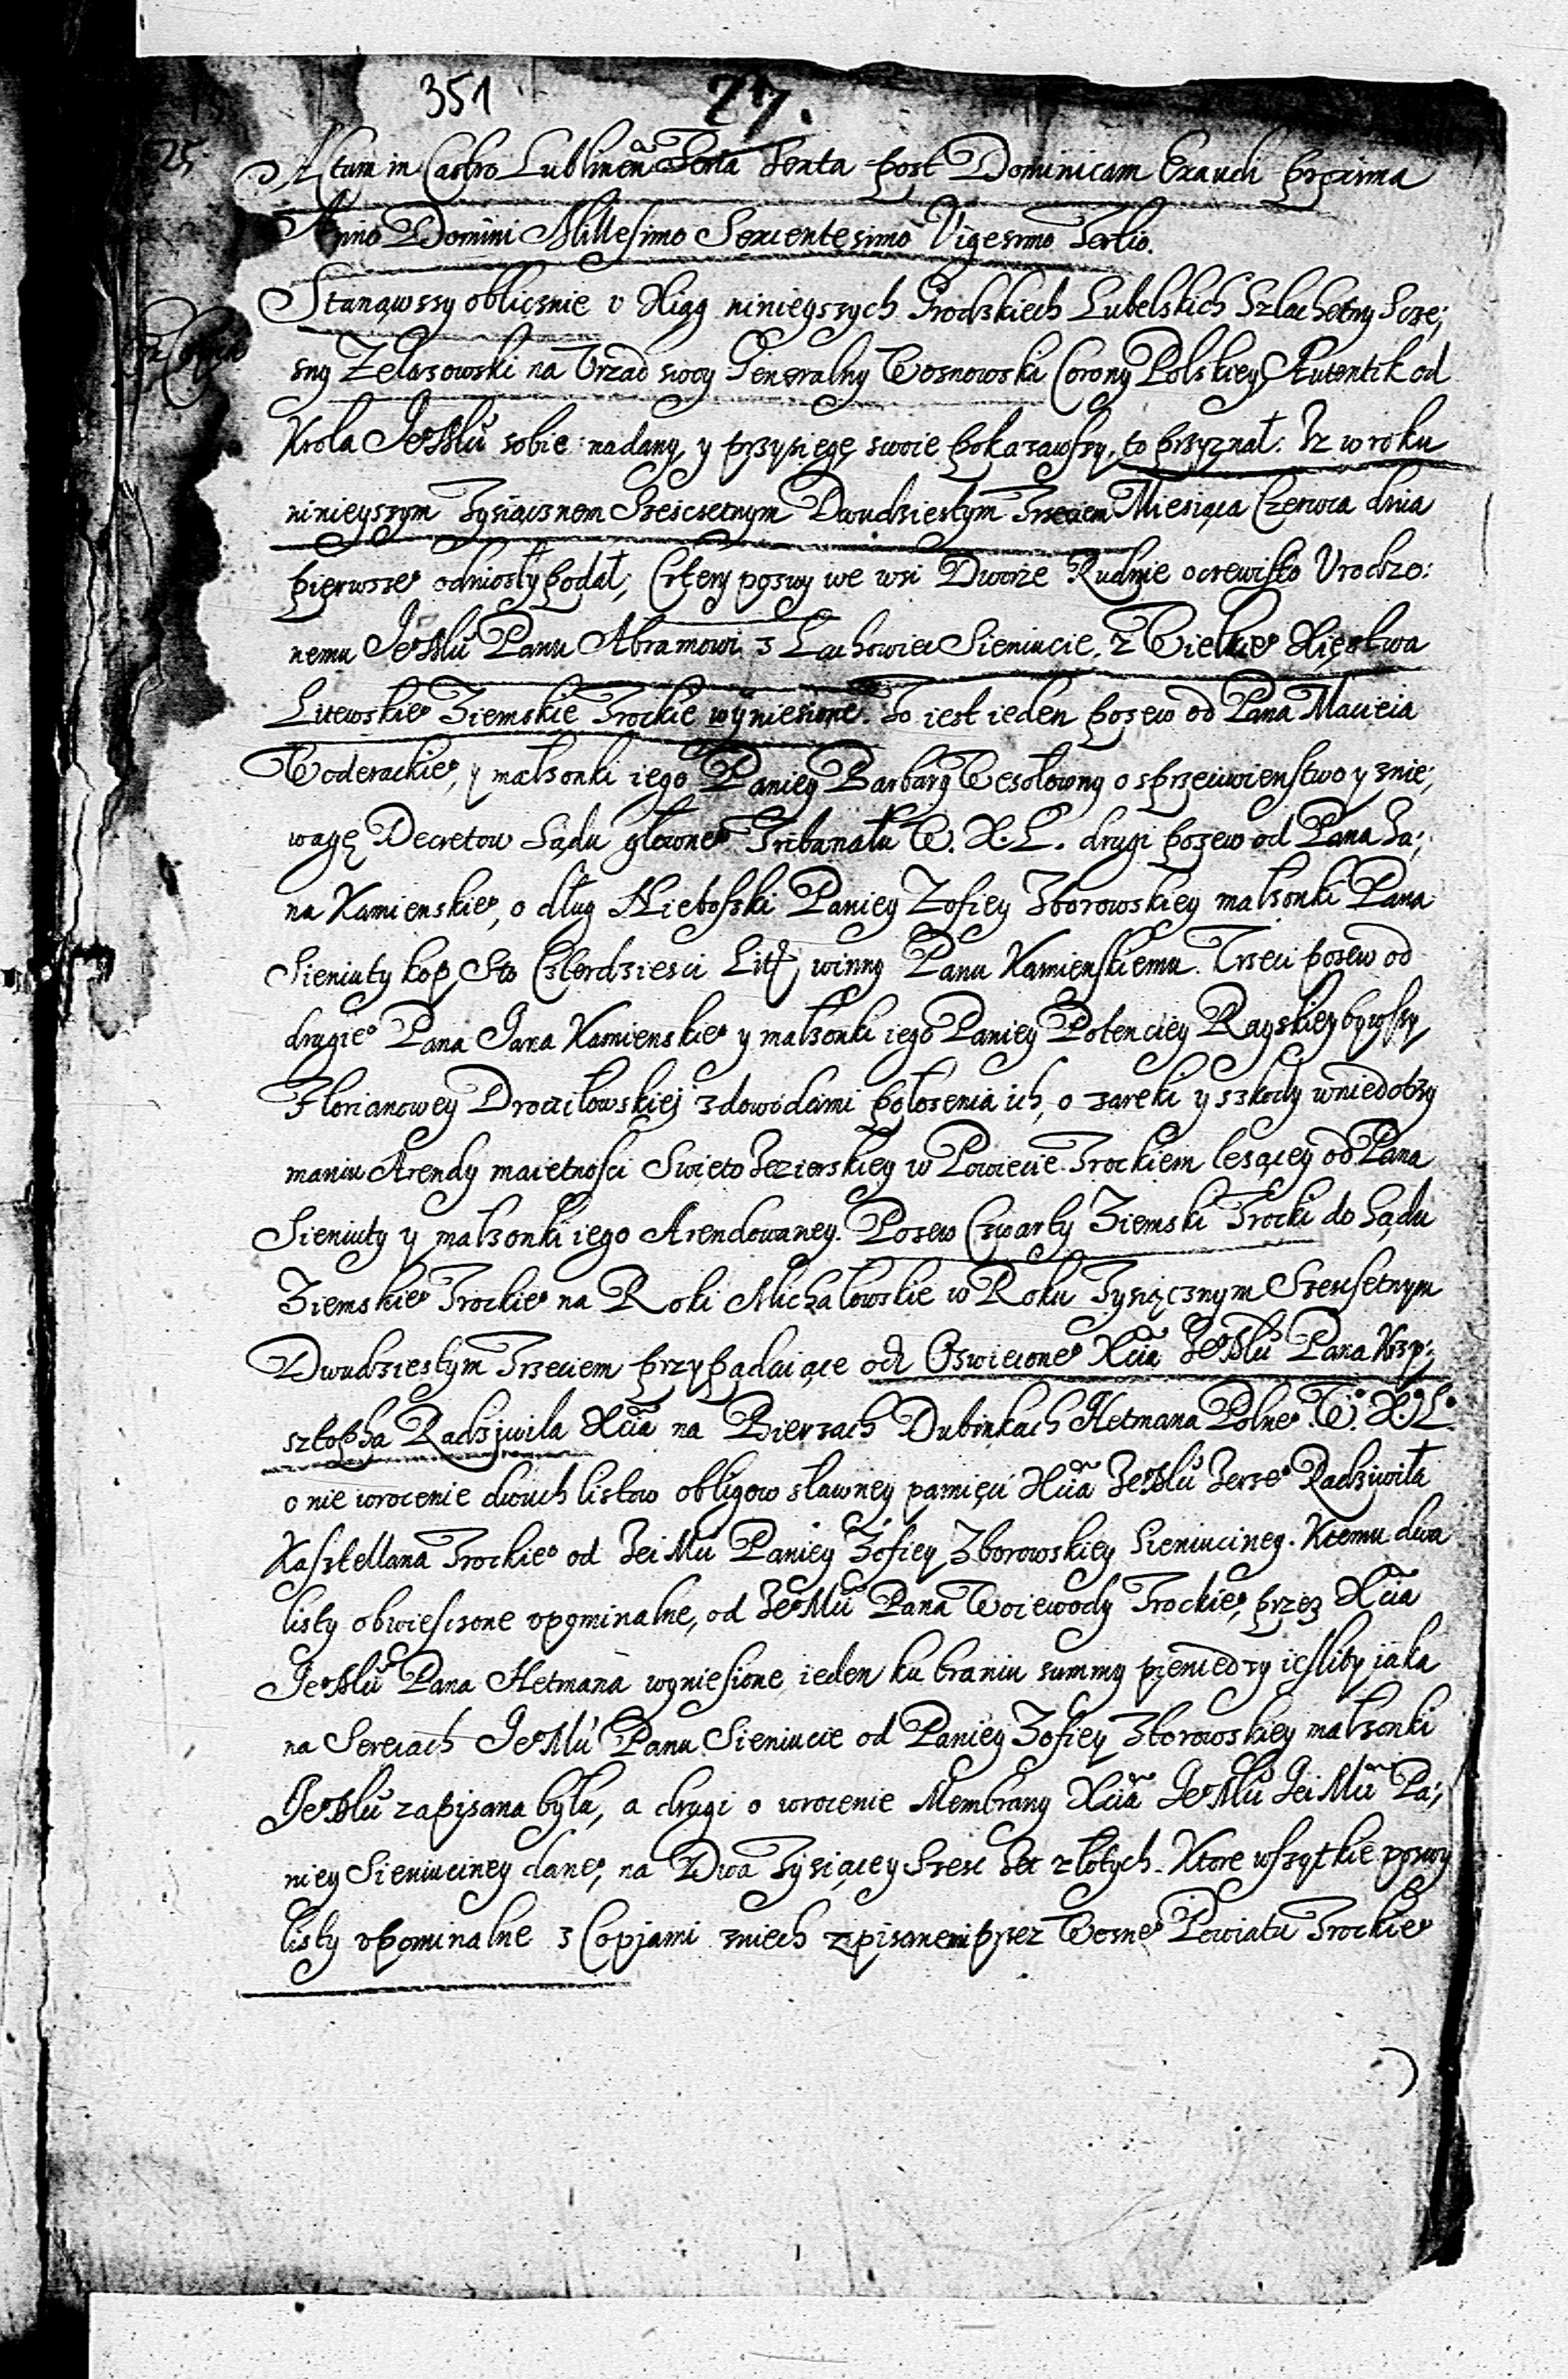 351 27.
25
Actum in Castro Lublinen̄ Feria Sexta post Dominicam Exaudi proxima
Anno Domini Millesimo Sexcentesimo Vigesimo Tertio.
Stanąwszy oblicznie v Xiąg ninieyszych Grodzkiech Lubelskich Szlachetny Szczę,
sny Zelazowski na Vrząd swoy Generalny Woznowski Corony Polskiey, Autentik od
Krola Je° Mści sobie nadany, y przysięgę swoie pokazawszy, to przyznał: Iz w roku
ninieyszym Tysiącznem Szescsetnym Dwudziestym Trzeciem Miesiąca Czerwca dnia
pierwsze° odniosł y podał, Cztery pozwy we wsi Dworze Rudnie oczewisto Vrodzo:
nemu Je° Mści Panu Abramowi z Lachowiec Sieniucie, z Wielkie° Xięstwa
Litewskie° Ziemskie Trockie wyniesione. To iest ieden pozew od Pana Macieia
Woderackie°, y małzonki iego Paniey Barbary Wesołowny o sprzeciwienstwo y znie,
wagę Decretow Sądu głowne° Tribunału W. X. L. drugi pozew od Pana Ja,
na Kamienskie°, o dług Nieboski Paniey Zofiey Zborowskiey małzonki Pana
Sieniuty kop Sto Czterdziesci Litt. winny Panu Kamienskiemu. Trzeci pozew od
drugie° Pana Jana Kamienskie° y małzonki iego Paniey Potenciey Rayskiey bywszy
Florianowey Drociłowskiej z dowodami połozenia ich, o zaręki y szkody w niedotrzy
maniu Arendy maietnosci Swieto Jezierskiey w Powiecie Trockiem lezącey od Pana
Sieniuty y małzonki iego Arendowaney. Pozew Czwarty Ziemski Trocki do Sądu
Ziemskie° Trockie° na Roki Michałowskie w Roku Tysiącznym Szescsetnym
Dwudziestym Trzeciem przypadaiące od Oswiecone° Xcia Je° Mści Pana Krzy,
sztopha Radziwiła Xcia na Bierzach Dubinkach Hetmana Polne° W. X. L.
o nie wrocenie dwuch listow obligow sławney pamięci Xcia Je° Mści Jerze° Radziwiła
Kasztellana Trockie° od Jei Mci Paniey Zofiey Zborowskiey Sieniuciney. Ktemu dwa
listy obwieszczone vpominalne, od Je° Mci Pana Woiewody Trockie°, przez Xcia
Je° Mści Pana Hetmana wyniesione, ieden ku braniu summy pieniedzy iesliby iaka
na Sereiach Je° Mci Panu Sieniucie od Paniey Zofiey Zborowskiey małzonki
Je° Mści zapisana była, a drugi o wrocenie Membrany Xcia Je° Mści Jei Mci Pa,
niey Sieniuciney dane°, na Dwa Tysiącey Szesc Set złotych. Ktore wszytkie pozwy
listy vpominalne z Copjami zniech zpisanemi przez Wozne° Powiatu Trockie°